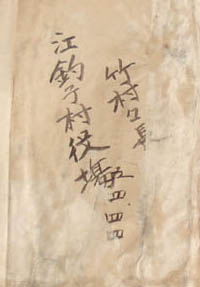 竹村
江釣子村役場
五四.四.四